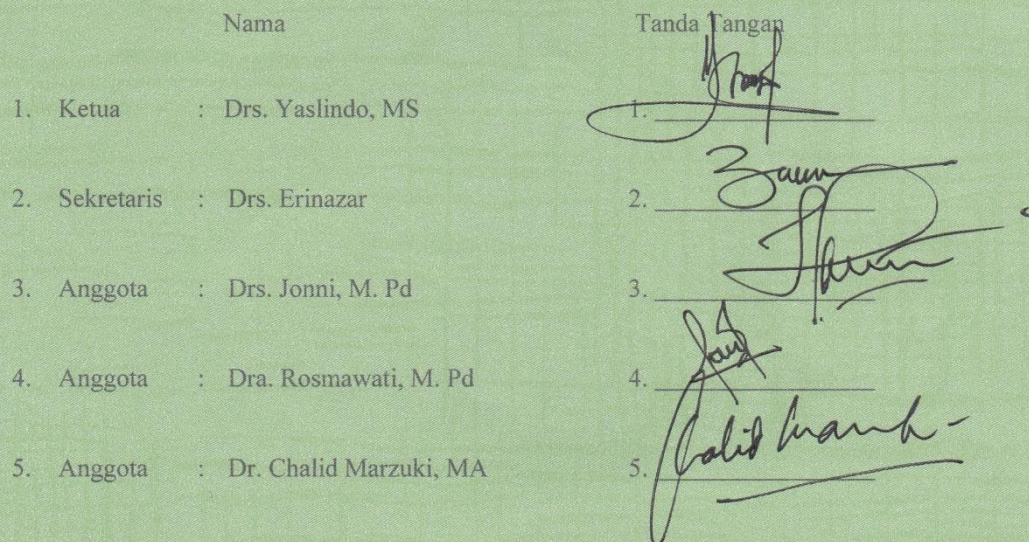 Nama Tanda Tangan
1. Ketua : Drs. Yaslindo, MS 1.
2. Sekretaris : Drs. Erinazar 2.
3. Anggota : Drs. Jonni, M. Pd 3.
4. Anggota : Dra. Rosmawati, M. Pd 4.
5. Anggota : Dr. Chalid Marzuki, MA 5.